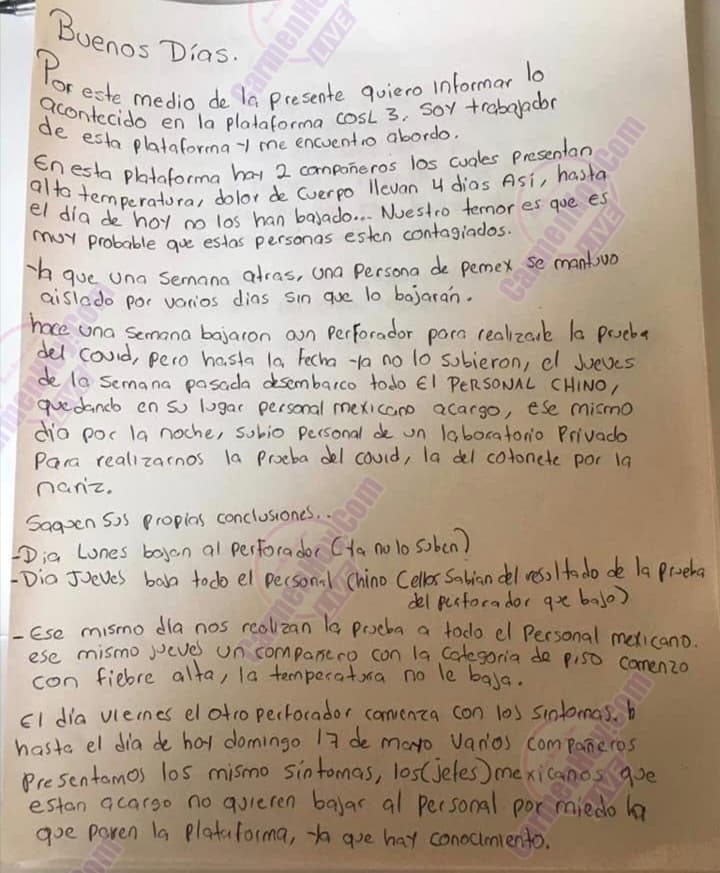 Buenos Días.
Por este medio de la presente quiero informar lo
acontecido en la plataforma COSL 3, soy trabajador
de esta plataforma y me encuentro abordo.
En esta plataforma hay 2 compañeros los cuales presentan
alta temperatura, dolor de cuerpo llevan 4 dias Así, hasta
el día de hoy no los han bajado... Nuestro temor es que es
muy probable que estas personas esten contagiados.
Ya que una semana atras, una persona de pemex se mantuvo
aislado por varios dias sin que lo bajarán.
hace una semana bajaron aun perforador para realizarle la prueba
del covid, pero hasta la fecha ya no lo subieron, el Jueves
de la semana pasada desembarco todo El PERSONAL CHINO,
quedando en su lugar personal mexicano acargo, ese mismo
dia por la noche, subio personal de un laboratorio Privado
Para realizarnos la Prueba del covid, la del cotonete por la
nariz.
Saquen sus propias conclusiones..
-Dia Lunes bajan al perforador (Ya no lo suben)
-Dia Jueves baja todo el personal Chino (ellos sabian del resultado de la prueba
del perforador que bajo)
- Ese mismo día nos realizan la prueba a todo el Personal mexicano.
ese mismo jueves un compañero con la categoria de piso comenzo
con fiebre alta, la temperatura no le baja.
El día viernes el otro perforador comienza con los sintomas,
hasta el día de hoy domingo 17 de mayo varios compañeros
Presentamos los mismo síntomas, los (jefes) mexicanos que
estan acargo no quieren bajar al personal por miedo ha
que paren la plataforma, ya que hay conocimiento.
CarmenHoy.Com
LIVE!
CarmenHoy.Com
LIVE!
CarmenHoy.Com
LIVE!
CarmenHoy.Com
LIVE!
CarmenHoy.Com
LIVE!